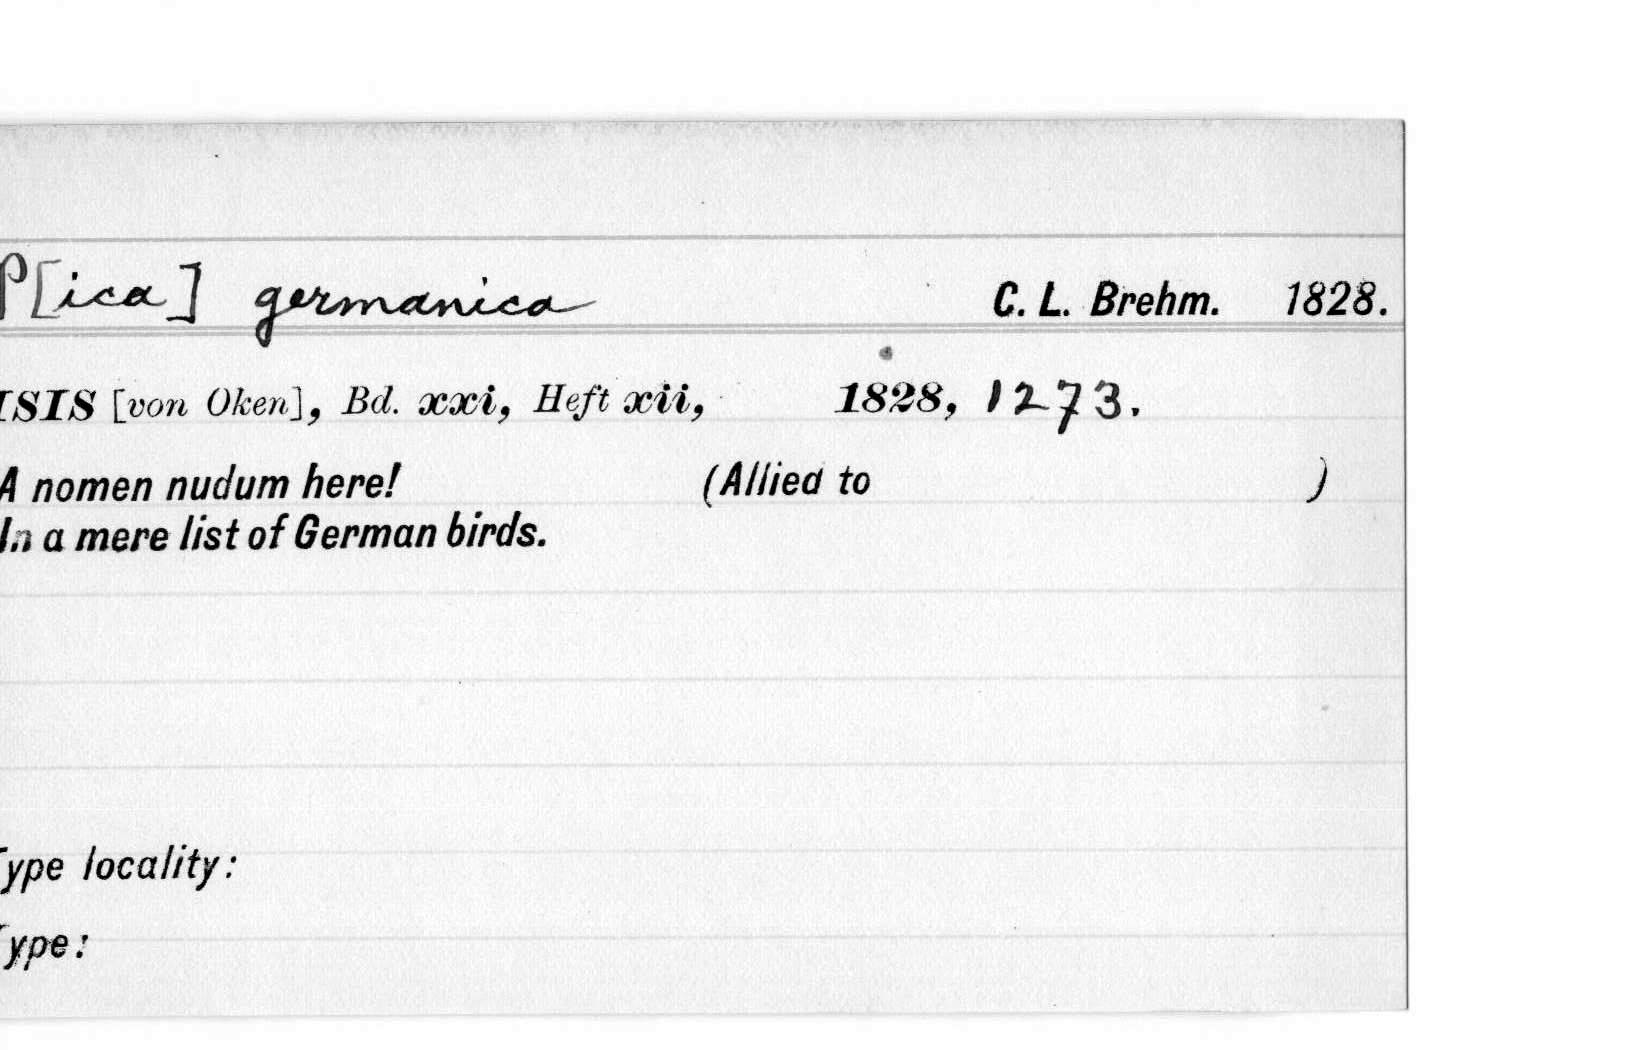 P[ica] germanica C. L. Brehm. 1828.
ISIS [von Oken], Bd. xxi, Heft xii, 1828, 1273.
A nomen nudum here! (Allied to )
In a mere list of German birds.
Type locality:
Type: